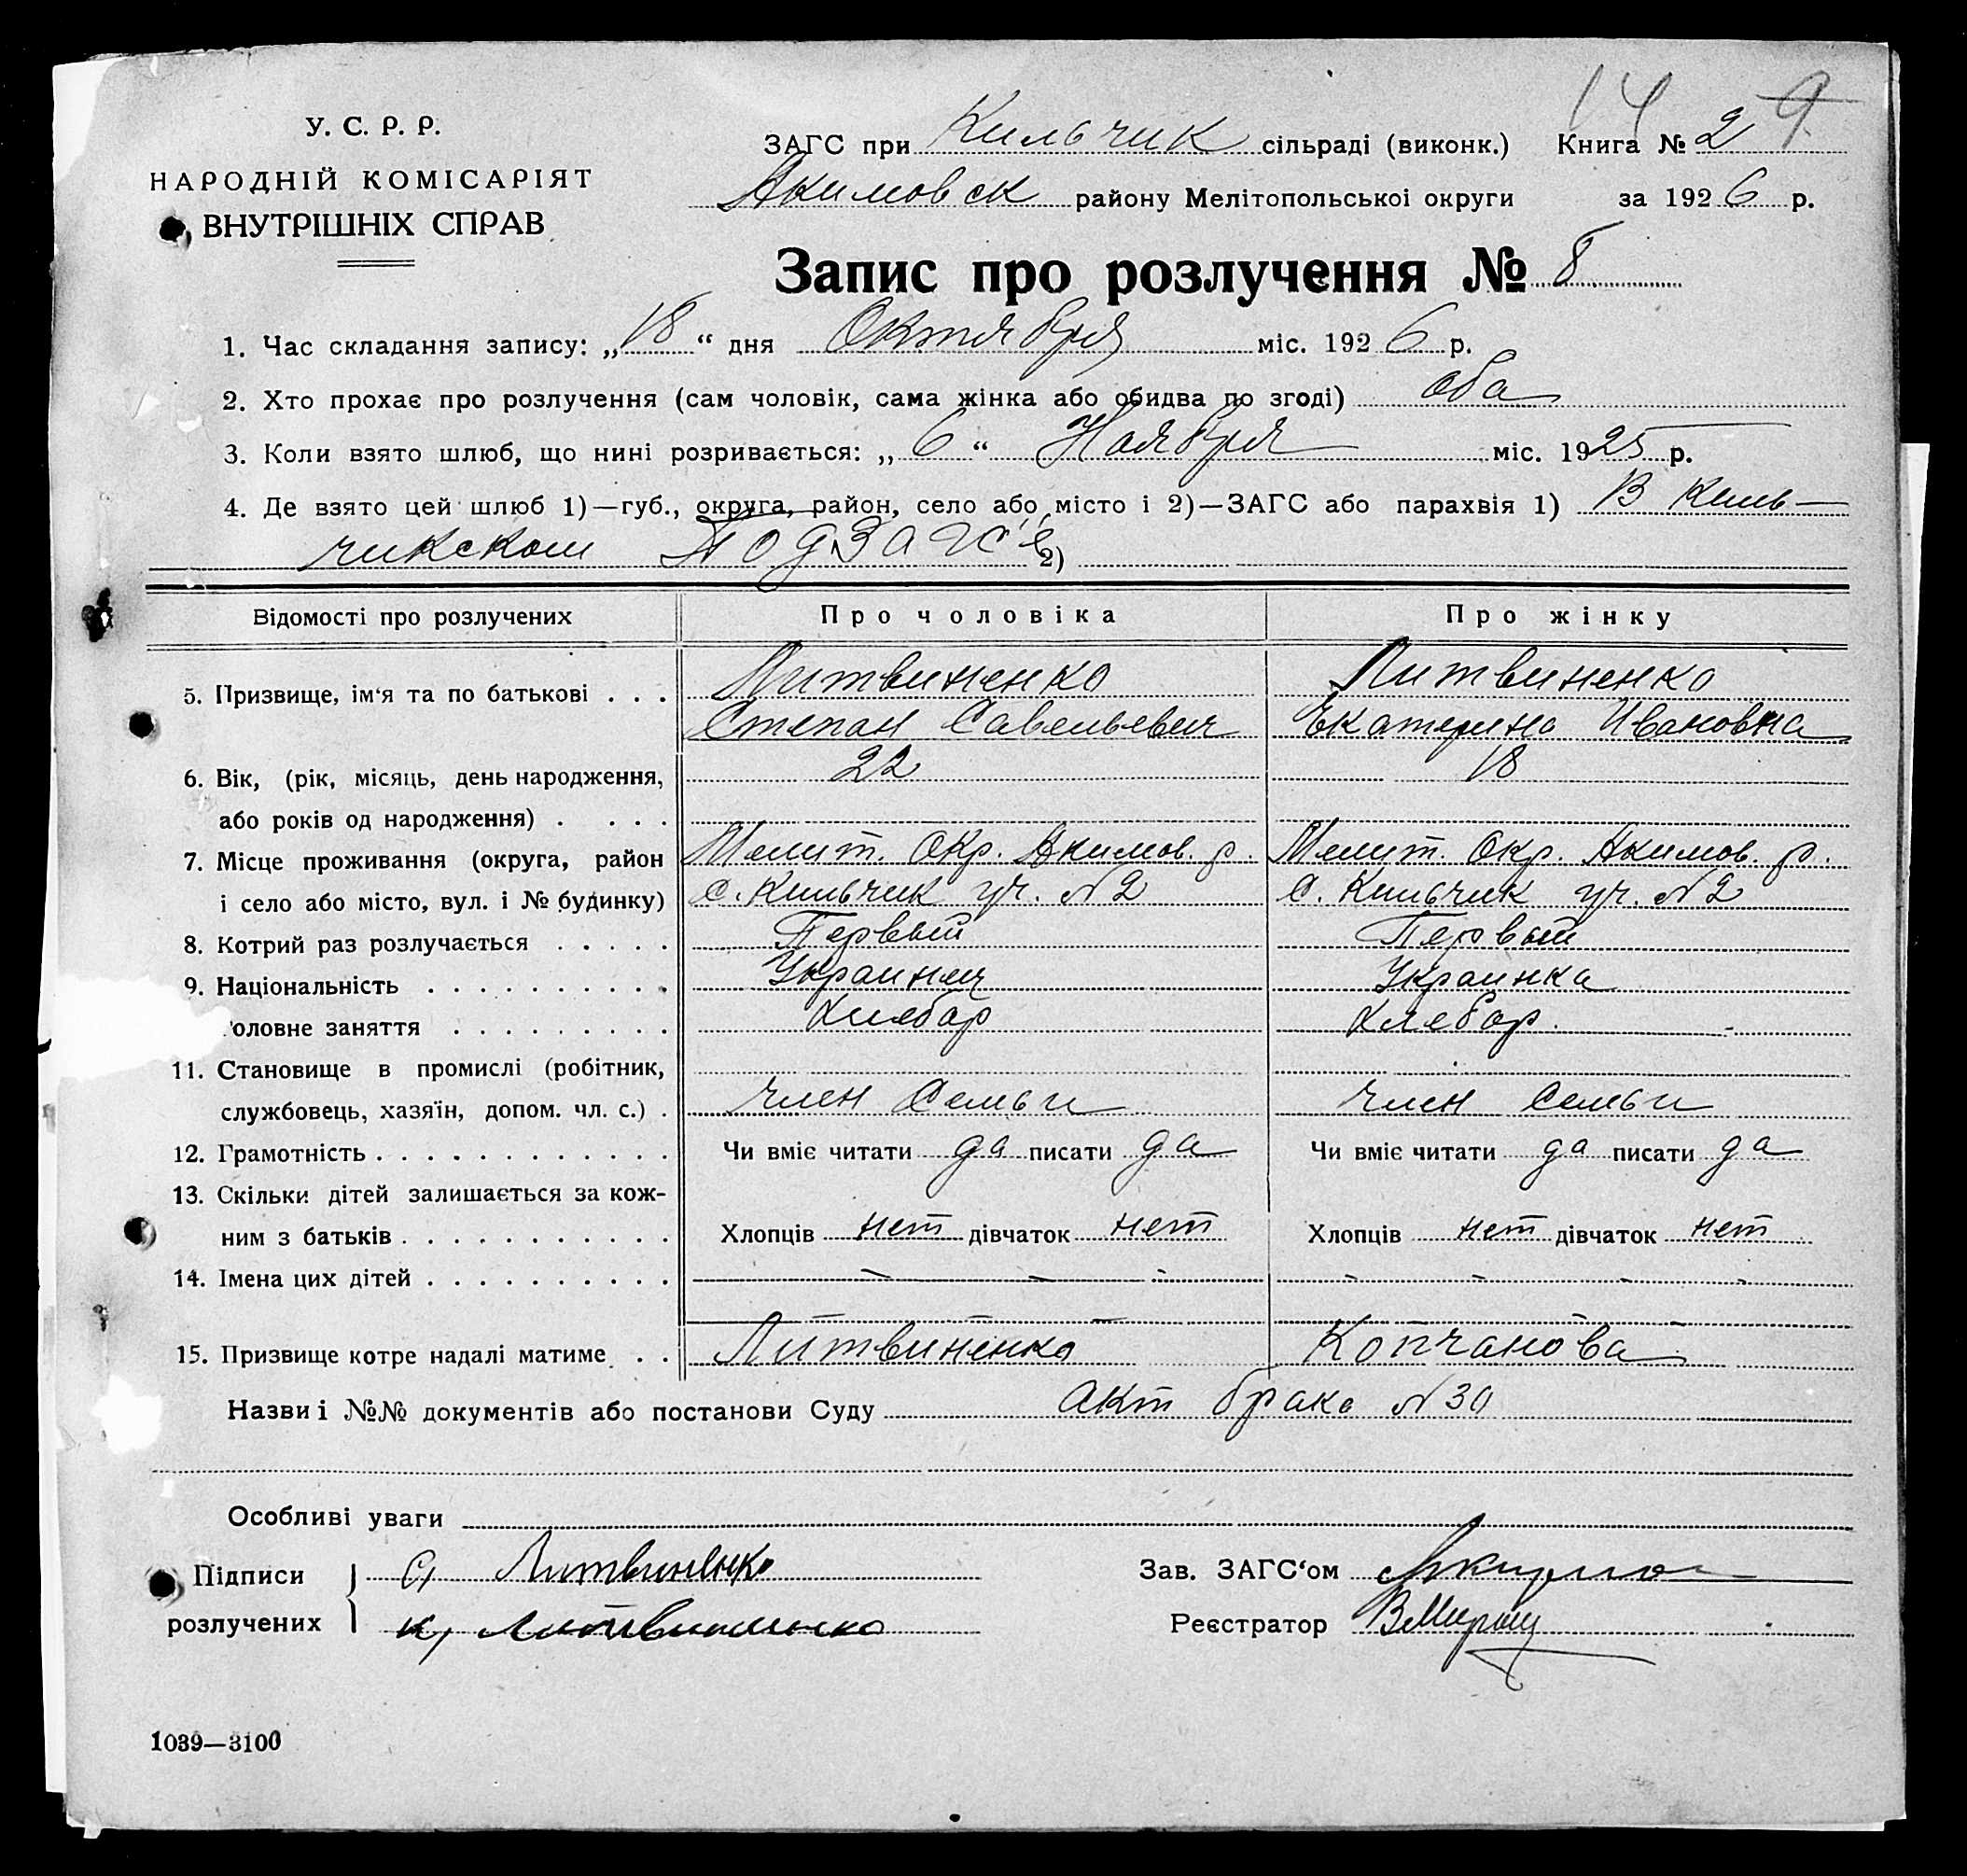 14 9
У. С. Р. Р.
НАРОДНІЙ КОМІСАРІЯТ
ВНУТРІШНІХ СПРАВ
ЗАГС при Кильчик сільраді (виконк.) Книга № 2
Акимовск району Мелітопольської округи за 1926 р.
Запис про розлучення № 8
1. Час складання запису: „18“ дня Октября міс. 1926 р.
2. Хто прохає про розлучення (сам чоловік, сама жінка або обидва по згоді) оба
3. Коли взято шлюб, що нині розривається: „6“ Ноября міс. 1925 р.
4. Де взято цей шлюб 1)—губ., округа, район, село або місто і 2)—ЗАГС або парахвія 1) В Киль-
чикском ПодЗАГС'е 2)
Відомості про розлучених Про чоловіка Про жінку
5. Призвище, ім‘я та по батькові . . . Литвиненко Литвиненко
Степан Савельевич Екатерина Ивановна
6. Вік, (рік, місяць, день народження, 22 18
або років од народження) . . . .
7. Місце проживання (округа, район Мелит. Окр. Акимов. р. Мелит. Окр. Акимов. р.
і село або місто, вул. і № будинку) С. Кильчик уч. №2 С. Кильчик уч. №2
8. Котрий раз розлучається . . . . . Первый Первый
9. Національність . . . . . . . . . . Украинец Украинка
оловне заняття . . . . . . . . . Хлебор Хлебор.
11. Становище в промислі (робітник,
службовець, хазяїн, допом. чл. с.) . член Семьи член Семьи
12. Грамотність . . . . . . . . . . . . Чи вміє читати да писати да Чи вміє читати да писати да
13. Скільки дітей залишається за кож-
ним з батьків . . . . . . . . . . . Хлопців нет дівчаток нет Хлопців нет дівчаток нет
14. Імена цих дітей . . . . . . . . . . — — - - - - -
15. Призвище котре надалі матиме . . Литвиненко Копчанова
Назви і №№ документів або постанови Суду Акт брака №30
Особливі уваги
Підписи С, Литвиненко Зав. ЗАГС‘ом
розлучених К, Литвиненко Реєстратор
1039—3100